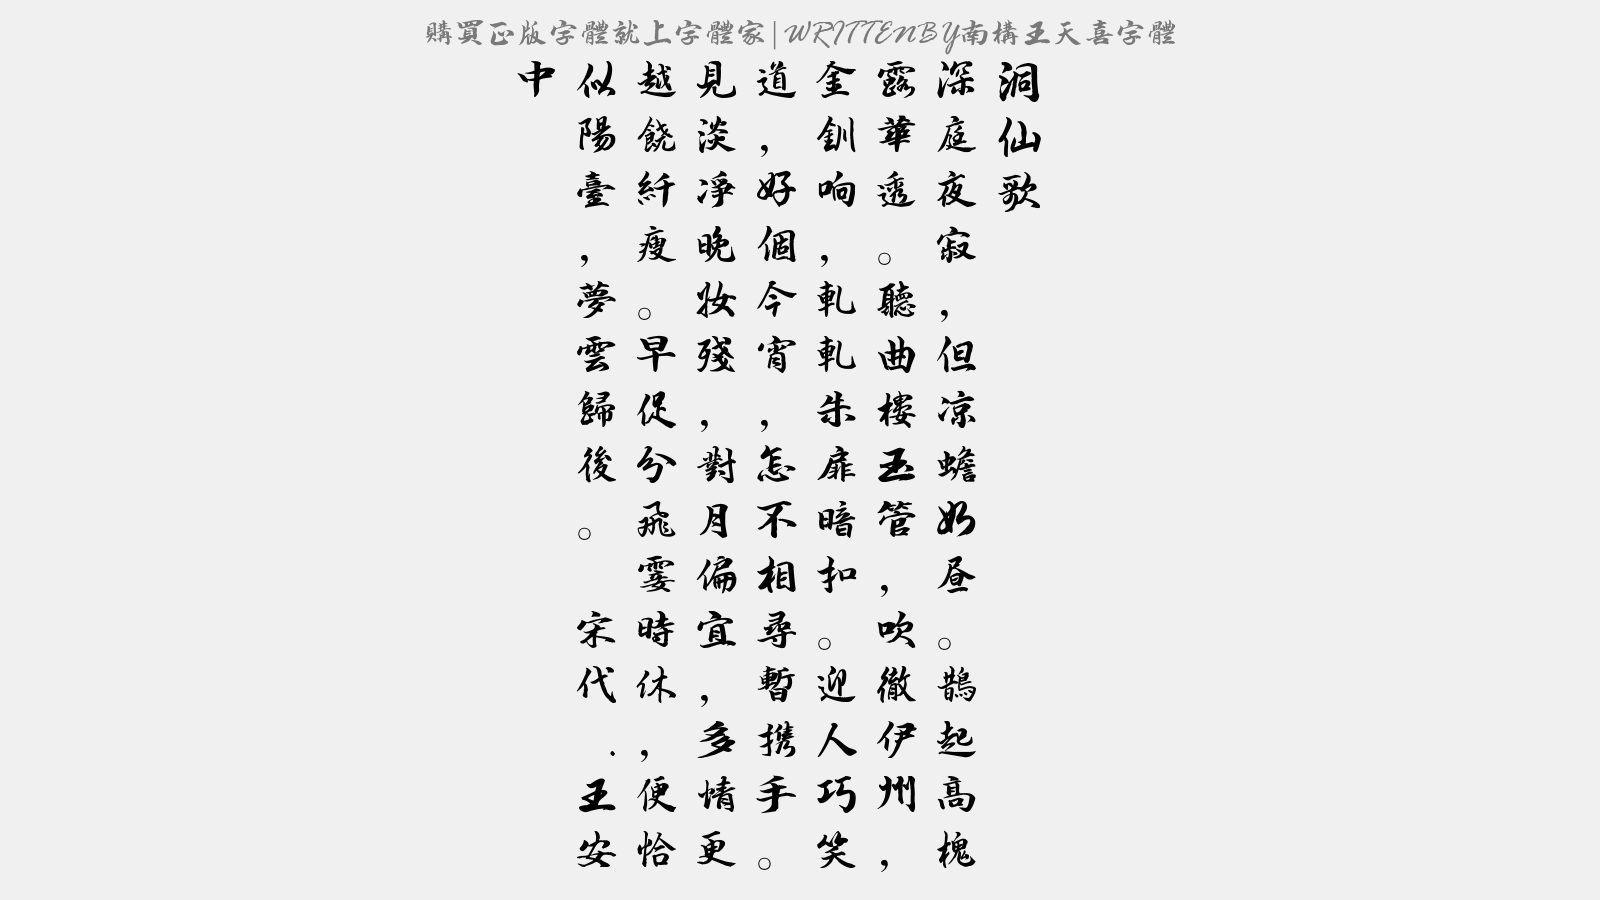 購買正版字體就上字體家|WRITTENBY南構王天喜字體
洞仙歌
深庭夜寂，但凉蟾如昼。鵲起高槐
露華透。聽曲楼玉管，吹徹伊州，
金釧响，軋軋朱扉暗扣。迎人巧笑
道，好個今宵，怎不相尋暫携手。
見淡凈晚妝殘，對月偏宜，多情更
越饒纤瘦。早促分飛霎時休，便恰
似陽臺，夢雲歸後。 宋代 .王安
中